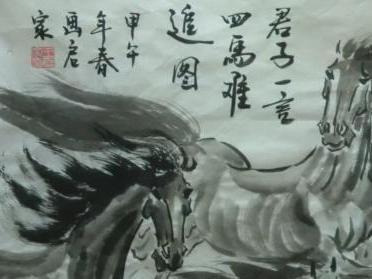 君子一言
四馬難
追图
甲午
年春
画启
家